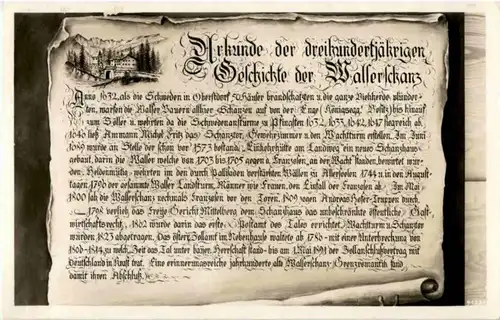 Urkunde der dreihundertjährigen
Geschichte der Walserschanz
Anno 1632, als die Schweden in Oberstdorf Häuser brandschatzten u. die ganze Viehherde plünder-
ten, warfen die Walser Bauern Schanzen auf, an der Enge Besitz bis hinauf
zum Söller u. wehrten da die Schwedenanstürme zu Pfingsten 1632, 1633, 1642, 1647 siegreich ab.
1646 ließ Ammann Michel Fritz das Schanztor, Gewehrzimmer u. den Wachtturm erstellen. Im Juni
1689 wurde an Stelle der schon vor 1573 bestand. Einkehrhütte am Landweg ein neues Schanzhaus
gebaut, darin die Walser, welche von 1703 bis 1705 gegen d. Franzosen an der Wacht standen, bewirtet wur-
den. Heldenmütig wehrten in den durch Palisaden verstärkten Wällen zu Allerseelen 1744 u. in den August-
tagen 1796 der gesamte Walser Landsturm, Männer wie Frauen, den Einfall der Franzosen ab. Im Mai
1800 sah die Walserschanz nochmals Franzosen vor den Toren. 1809 zogen Andreas Hofer-Truppen durch.
1798 verlieh das Freye Gericht Mittelberg dem Schanzhaus das unbeschränkte öffentliche Gast-
wirtschaftsrecht. 1821 wurde darin das erste Postamt des Tales errichtet, Wachtturm u. Schanztor
wurden 1823 abgetragen. Das österr. Zollamt im Nebenhause waltete ab 1780 mit einer Unterbrechung von
1806-1814, zu welch. Zeit das Tal unter bayer. Herrschaft stand bis am 1. Mai 1891 der Zollanschlußvertrag mit
Deutschland in Kraft trat. Eine erinnerungsreiche jahrhunderte alte Walserschanz-Grenzromantik fand
damit ihren Abschluß.